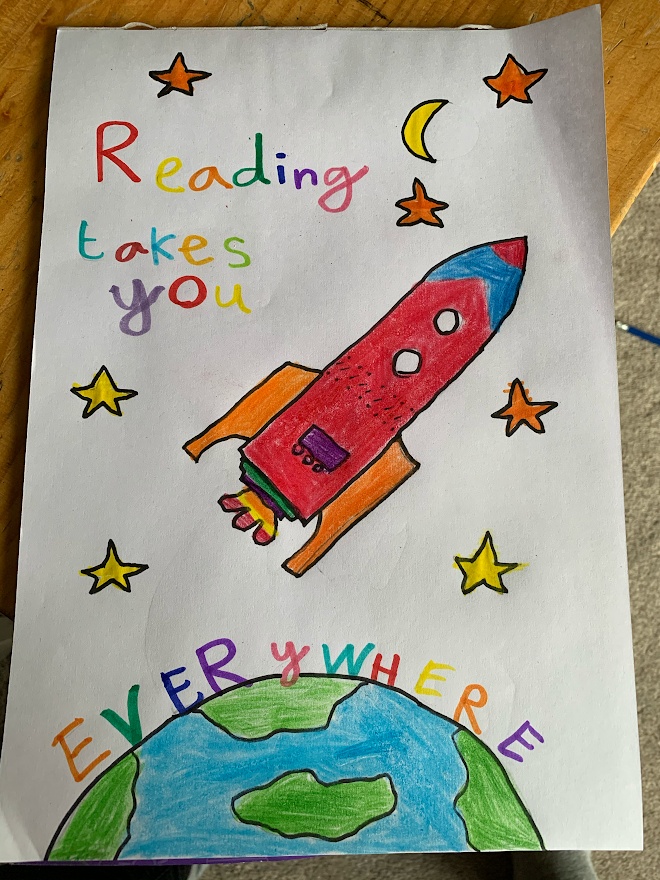 Reading
takes
you
EVERyWHERE